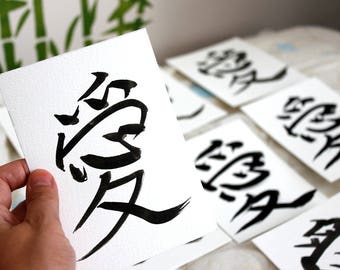 愛
愛
愛
愛
愛